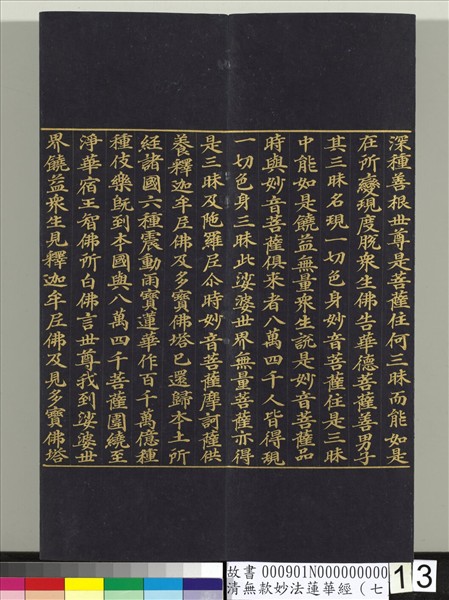 深種善根世尊是菩薩住何三昧而能如是
在所變現度脫衆生佛告華德菩薩善男子
其三昧名現一切色身妙音菩薩住是三昧
中能如是饒益無量衆生說是妙音菩薩品
時與妙音菩薩俱來者八萬四千人皆得現
一切色身三昧此娑婆世界無量菩薩亦得
是三昧及陁羅尼尒時妙音菩薩摩訶薩供
養釋迦牟尼佛及多寶佛塔已還歸本土所
経諸國六種震動雨寶蓮華作百千萬億種
種伎樂旣到本國與八萬四千菩薩圍繞至
淨華宿王智佛所白佛言世尊我到娑婆世
界饒益衆生見釋迦牟尼佛及見多寶佛塔
故書 000901N000000000
清無款妙法蓮華經（七
13